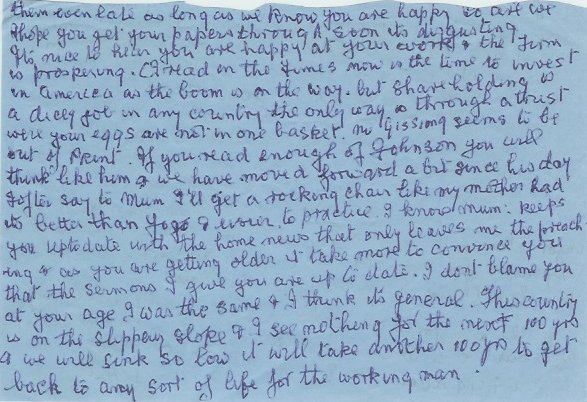 them even late as long as we know you are happy & all we
hope you get your papers through soon its disgusting.
Its nice to hear you are happy at your work & the firm
is prospering. I read in the Times now is the time to invest
in America as the boom is on the way. but shareholding is
a dicey job in any country the only way is through a trust
were your eggs are not in one basket. Mr Gissing seems to be
out of Print. If you read enough of Johnson you will
think like him & we have moved forward a bit since his day
I often say to Mum I'll get a rocking chair like my mother had
its better than Yoga & easier to practice. I know Mum. keeps
you up to date with the home news that only leaves me the preach
ing & as you are getting older it take more to convince you
that the sermons I give you are up to date. I dont blame you
at your age I was the same & I think its general. This country
is on the slippery slope & I see nothing for the next 100 yrs
& we will sink so low it will take another 100 yrs to get
back to any sort of life for the working man.